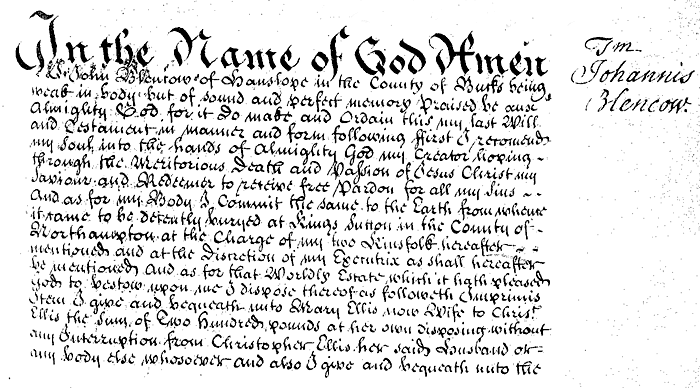 In the Name of God Amen
I John Blencow of Hanslope in the County of Bucks being
weak in body but of sound and perfect memory Praised be
Almighty God for it do make and Ordain this my last Will
and Testament in manner and form following ffirst I recomend
my Soul into the hands of Almighty God my Creator hoping
through the Meritorious Death and Passion of Jesus Christ my
Saviour and Redeemer to receive free Pardon for all my Sins
And as for my Body I Commit the same to the Earth from whence
it came to be decently buryed at Kings Sutton in the County of
Northampton at the Charge of my two Kinsfolk hereafter
mentioned and at the Discretion of my Executrix as shall hereafter
be mentioned And as for that Worldly Estate which it hath pleased
God to bestow upon me I dispose thereof as followeth Imprimis
Item I give and bequeath unto Mary Ellis now Wife to Christ.
Ellis the Sum of Two Hundred pounds at her own disposing without
any Interruption from Christopher Ellis her said Husband or
any body else whosoever and also I give and bequeath unto the
Tm
Johannis
Blencow.